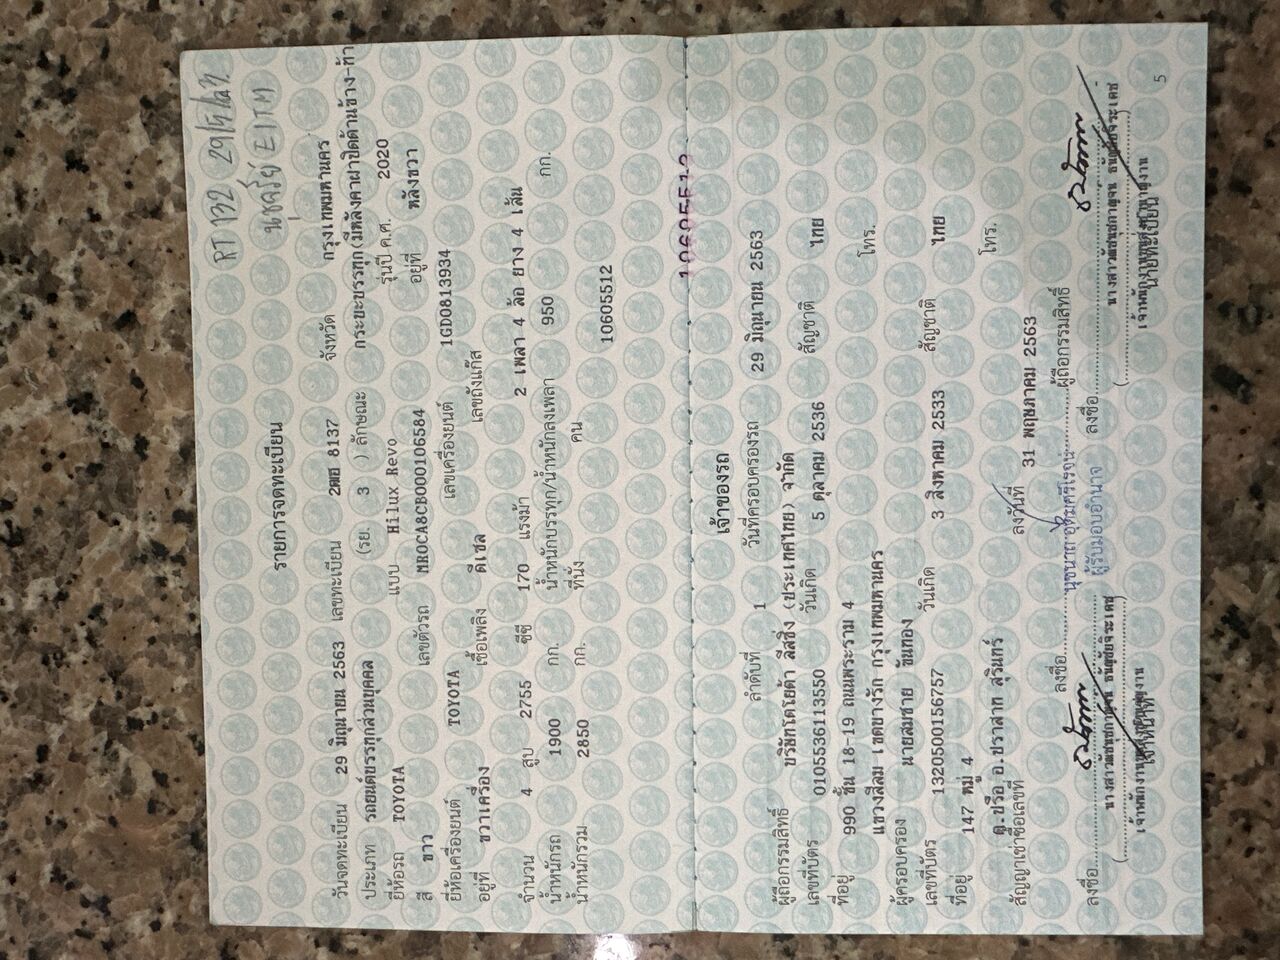 RT 132 29/5/63
EITM
รายการจดทะเบียน
วันจดทะเบียน 29 มิถุนายน 2563 เลขทะเบียน 2ฒศ 8137 จังหวัด กรุงเทพมหานคร
ประเภท รถยนต์บรรทุกส่วนบุคคล (รย. 3 ) ลักษณะ กระบะบรรทุก(มีหลังคาฝาปิดด้านข้าง-ท้า
ยี่ห้อรถ TOYOTA แบบ Hilux Revo รุ่นปี ค.ศ. 2020
สี ขาว เลขตัวรถ MR0CA8CB000106584 อยู่ที่ หลังขวา
ยี่ห้อเครื่องยนต์ TOYOTA เลขเครื่องยนต์ 1GD0813934
อยู่ที่ ขวาเครื่อง เชื้อเพลิง ดีเซล เลขถังแก๊ส
จำนวน 4 สูบ 2755 ซีซี 170 แรงม้า 2 เพลา 4 ล้อ ยาง 4 เส้น
น้ำหนักรถ 1900 กก. น้ำหนักบรรทุก/น้ำหนักลงเพลา 950 กก.
น้ำหนักรวม 2850 กก. ที่นั่ง คน
10605512
10605512
เจ้าของรถ
ลำดับที่ 1 วันที่ครอบครองรถ 29 มิถุนายน 2563
ผู้ถือกรรมสิทธิ์ บริษัทโตโยต้า ลีสซิ่ง (ประเทศไทย) จำกัด
เลขที่บัตร 0105536113550 วันเกิด 5 ตุลาคม 2536 สัญชาติ ไทย
ที่อยู่ 990 ชั้น 18-19 ถนนพระราม 4
แขวงสีลม เขตบางรัก กรุงเทพมหานคร โทร.
ผู้ครอบครอง นายสมชาย ขันทอง
เลขที่บัตร 1320500156757 วันเกิด 3 สิงหาคม 2533 สัญชาติ ไทย
ที่อยู่ 147 หมู่ 4
ต.ปรือ อ.ปราสาท สุรินทร์ โทร.
สัญญาเช่าซื้อเลขที่ ลงวันที่ 31 พฤษภาคม 2563
ลงชื่อ ผู้ถือกรรมสิทธิ์
ผู้รับมอบอำนาจ
ลงชื่อ ลงชื่อ
เจ้าหน้าที่ นายทะเบียน
5